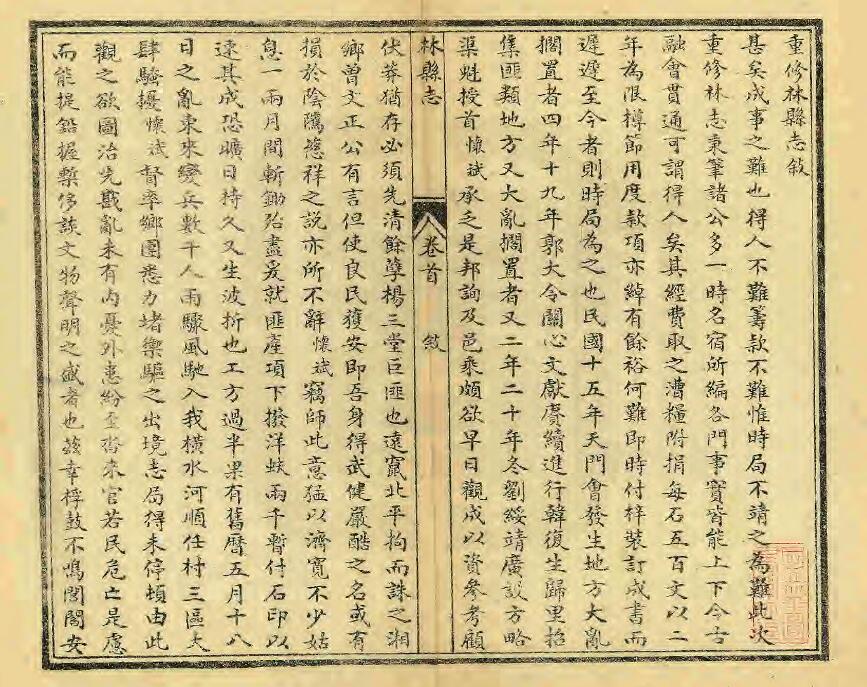 重修林縣志敘
甚矣成事之難也得人不難籌款不難惟時局不靖之為難此次
重修林志秉筆諸公多一時名宿所編各門事實皆能上下今古
融會貫通可謂得人矣其經費取之漕糧附捐每石五百文以二
年為限樽節用度款項亦綽有餘裕何難即時付梓裝訂成書而
遲遲至今者則時局為之也民國十五年天門會發生地方大亂
擱置者四年十九年郭大令關心文獻賡續進行韓復生歸里招
集匪類地方又大亂擱置者又二年二十年冬劉綏靖廣設方略
渠魁授首懷斌承乏是邦詢及邑乘頗欲早日觀成以資參考顧
林縣志
卷首
敘
伏莽猶存必須先清餘孽楊三堂巨匪也遠竄北平拘而誅之湘
鄉曾文正公有言但使良民獲安即吾身得武健嚴酷之名或有
損於陰騭慈祥之說亦所不辭懷斌竊師此意猛以濟寬不少姑
息一兩月間斬鋤殆盡爰就匪產項下撥洋蚨兩千暫付石印以
速其成恐曠日持久又生波折也工方過半果有舊曆五月十八
日之亂東來變兵數千人雨驟風馳入我橫水河順任村三區大
肆騷擾懷斌督率鄉團悉力堵禦驅之出境志局得未停頓由此
觀之欲圖治先戡亂未有內憂外患紛至沓來官若民危亡是慮
而能提鉛握槧侈談文物聲明之盛者也茲幸桴鼓不鳴閭閻安